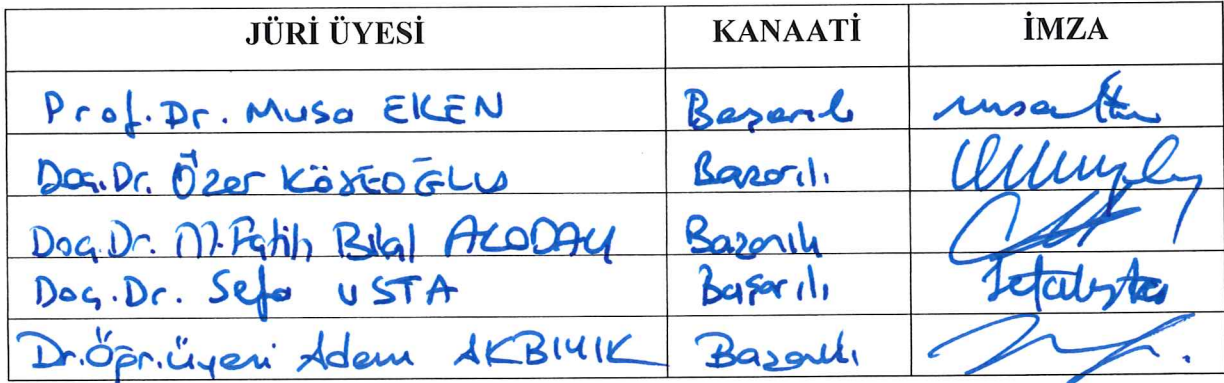 JÜRİ ÜYESİ KANAATİ İMZA
Prof. Dr. Musa EKEN Başarılı
Doç. Dr. Özer KÖSEOĞLU Başarılı
Doç. Dr. M. Fatih Bilal ALODALI Başarılı
Doç. Dr. Sefa USTA Başarılı
Dr. Öğr. üyesi Adem AKBIYIK Başarılı